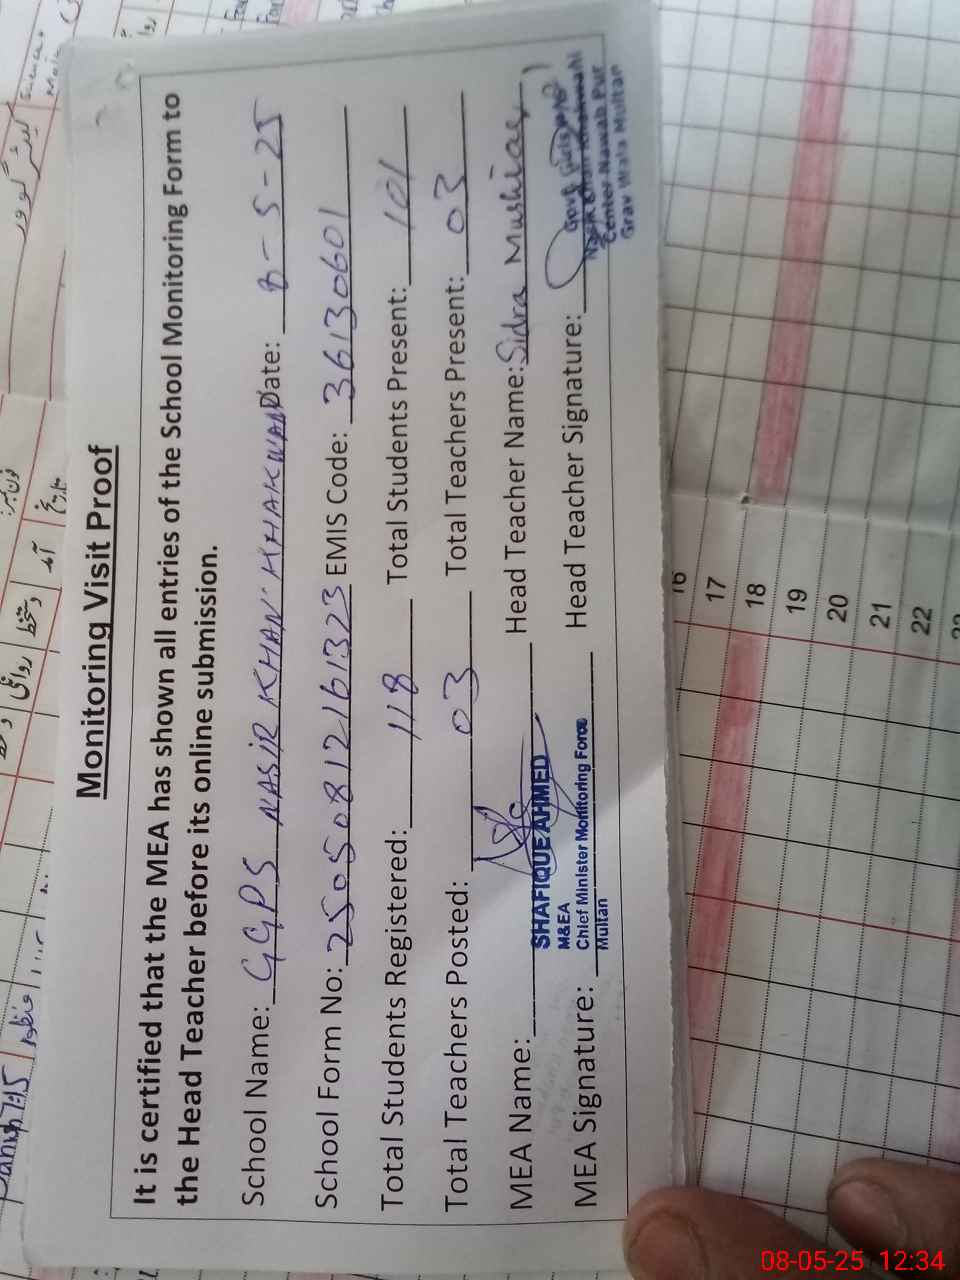 Monitoring Visit Proof
It is certified that the MEA has shown all entries of the School Monitoring Form to
the Head Teacher before its online submission.
School Name: GGPS NASIR KHAN KHAKWANI Date: 8-5-25
School Form No: 25050812161323 EMIS Code: 36130601
Total Students Registered: 118 Total Students Present: 101
Total Teachers Posted: 03 Total Teachers Present: 03
MEA Name: Head Teacher Name: Sidra Mushtaq
SHAFIQUE AHMED
M&EA
Chief Minister Monitoring Force
Multan
MEA Signature: Head Teacher Signature:
Govt. Girls
Center Nawab Pur
Grav Wala Multan
16
17
18
19
20
21
22
23
08-05-25 12:34